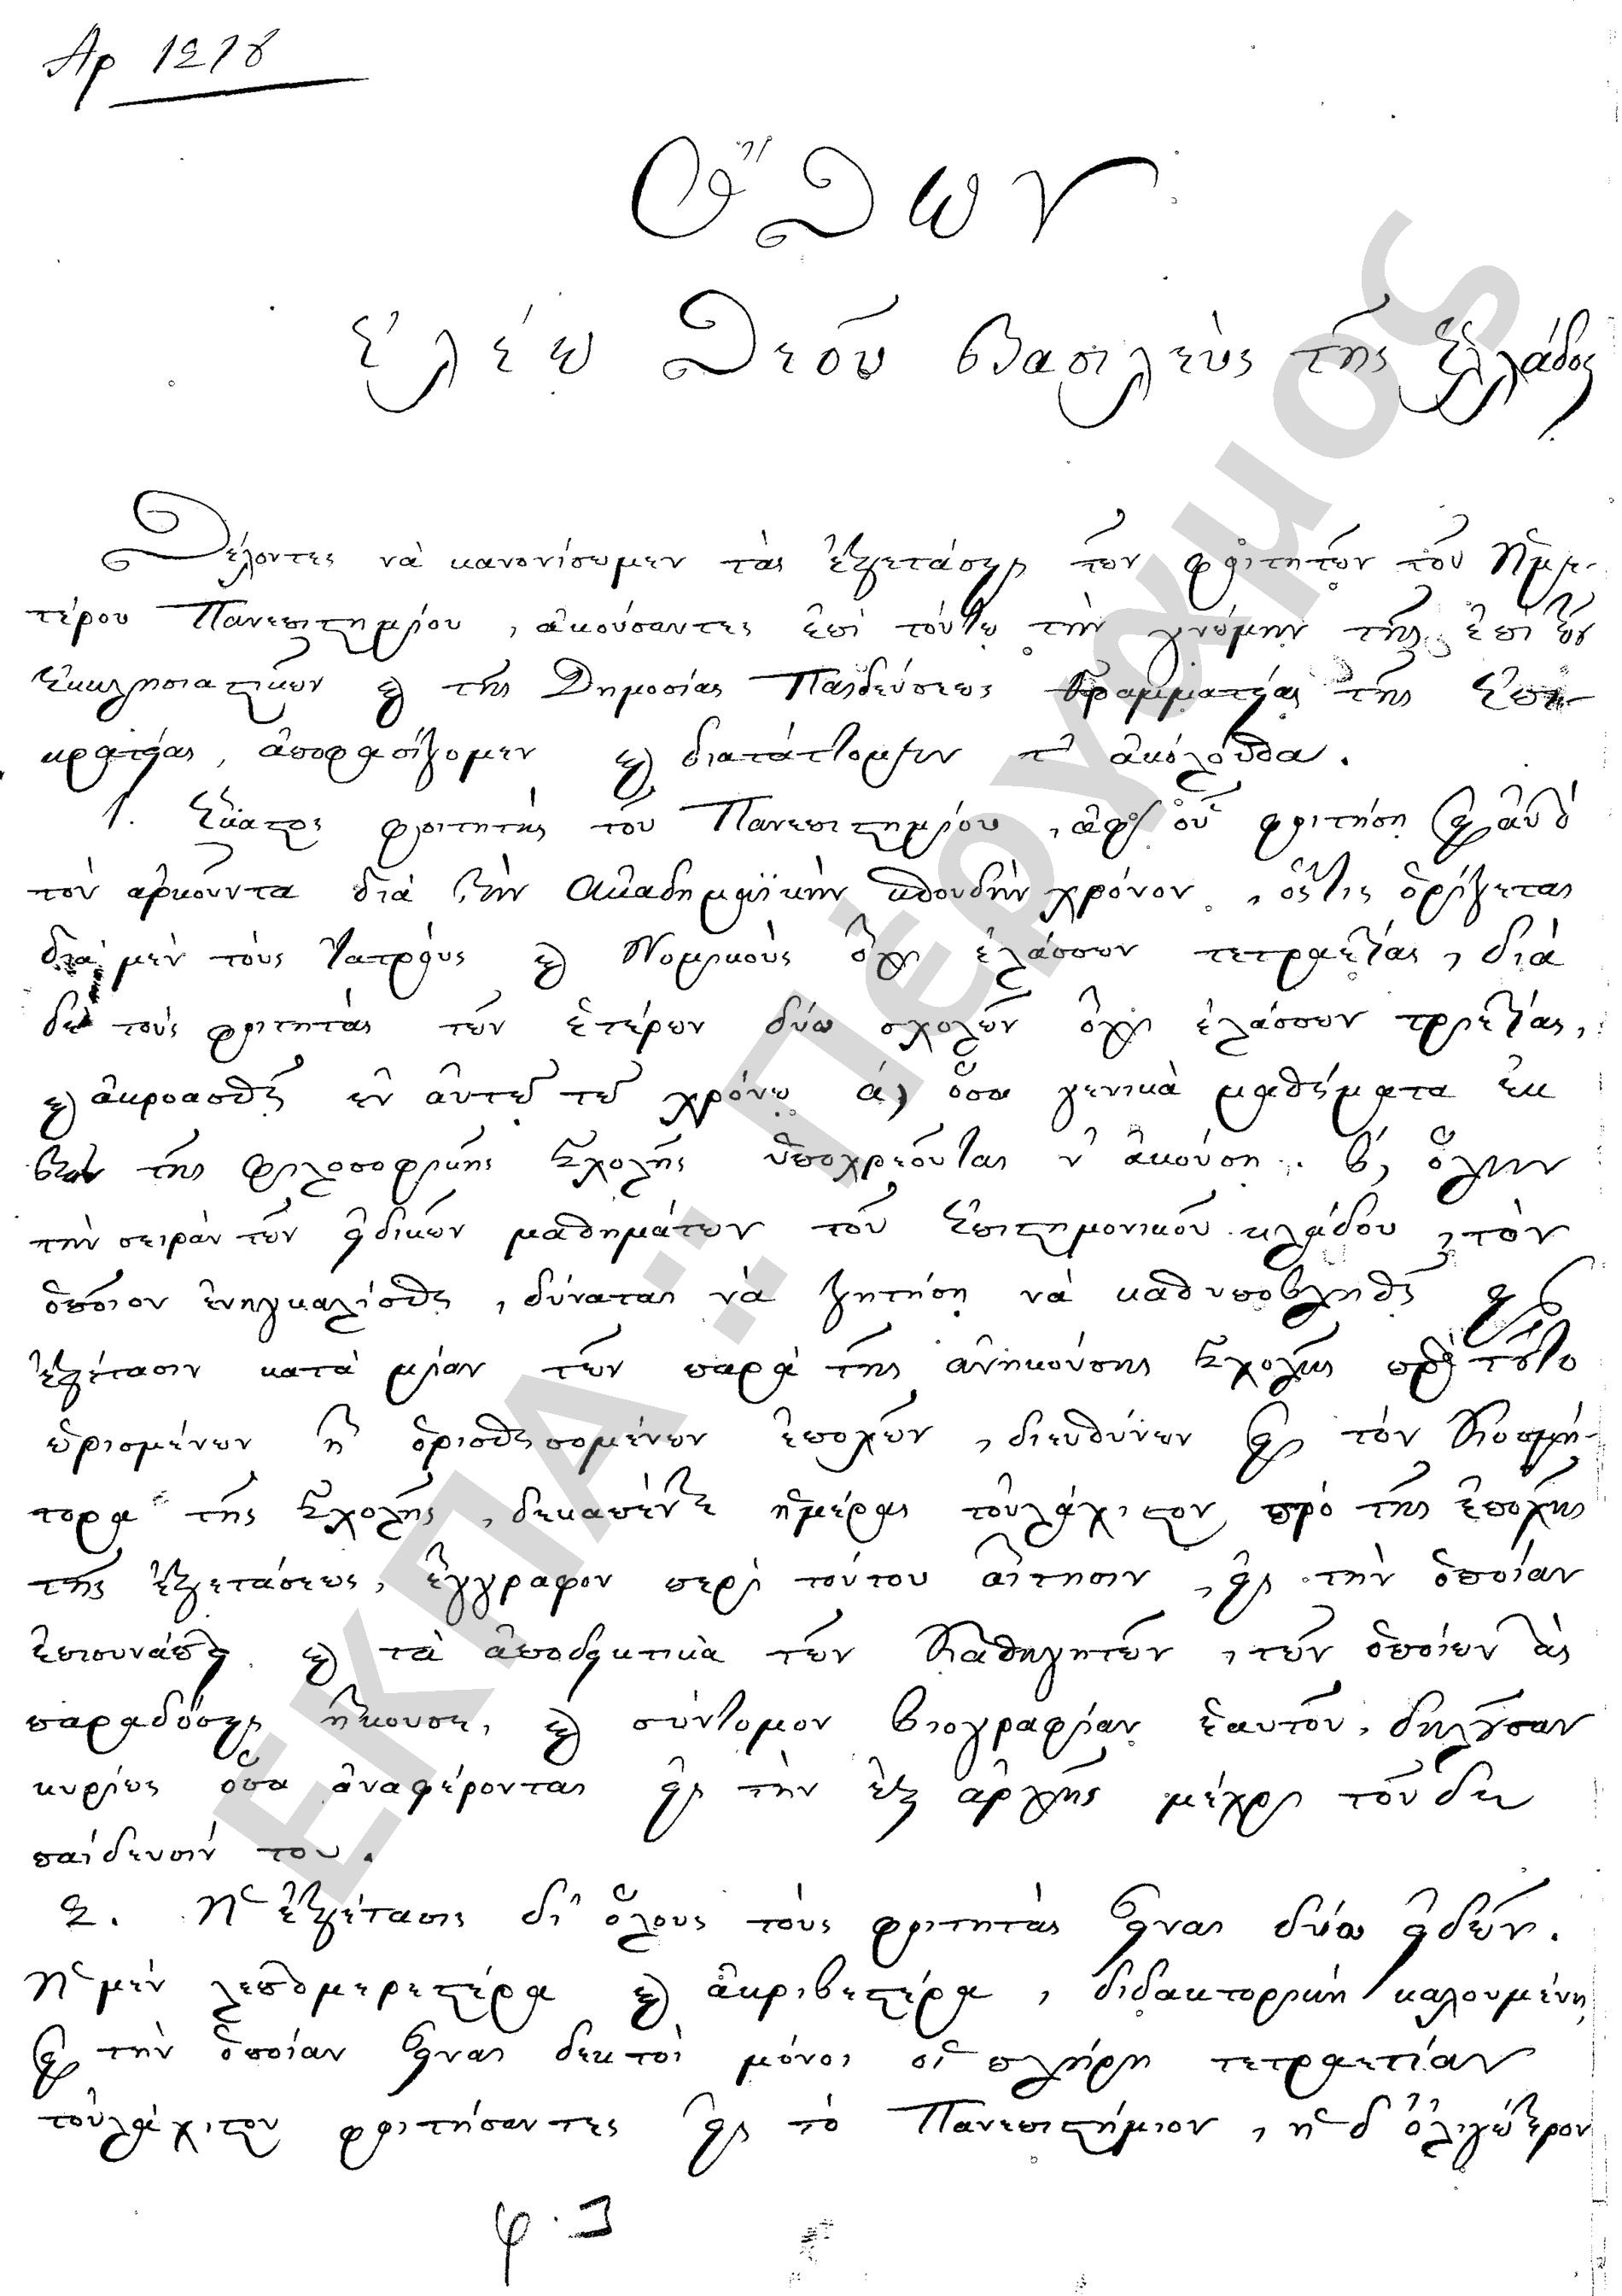 Αρ 1278
Ὄθων
ἐλέῳ Θεοῦ Βασιλεὺς τῆς Ἑλλάδος
Θέλοντες νὰ κανονίσωμεν τὰς ἐξετάσεις τῶν φοιτητῶν τοῦ Ἡμε-
τέρου Πανεπιστημίου, ἀκούσαντες ἐπὶ τούτῳ τὴν γνώμην τῆς ἐπὶ τῶν
Ἐκκλησιαστικῶν καὶ τῆς Δημοσίας Παιδεύσεως Γραμματείας τῆς Ἐπι-
κρατείας, ἀποφασίζομεν καὶ διατάττομεν τ' ἀκόλουθα.
1. Ἕκαστος φοιτητὴς τοῦ Πανεπιστημίου, ἀφ' οὗ φοιτήσῃ εἰς αὐτὸ
τὸν ἀρκοῦντα διὰ τὴν Ἀκαδημαϊκὴν σπουδὴν χρόνον, ὅςτις ὁρίζεται
διὰ μὲν τοὺς Ἰατροὺς καὶ Νομικοὺς ὄχι ἐλάσσων τετραετίας, διὰ
δὲ τοὺς φοιτητὰς τῶν ἑτέρων δύω σχολῶν ὄχι ἐλάσσων τριετίας,
καὶ ἀκροασθῇ ἐν αὐτῷ τῷ χρόνῳ α) ὅσα γενικὰ μαθήματα ἐκ
τῶν τῆς φιλοσοφικῆς Σχολῆς ὑποχρεοῦται ν' ἀκούσῃ. β) ὅλην
τὴν σειρὰν τῶν εἰδικῶν μαθημάτων τοῦ Ἐπιστημονικοῦ κλάδου, τὸν
ὁποῖον ἐνηγκαλίσθη, δύναται νὰ ζητήσῃ νὰ καθυποβληθῇ εἰς
ἐξέτασιν κατὰ μίαν τῶν παρὰ τῆς ἀνηκούσης Σχολῆς πρὸς τοῦτο
ὡρισμένων ἢ ὁρισθησομένων ἐποχῶν, διευθύνων εἰς τὸν Κοσμή-
τορα τῆς Σχολῆς, δεκαπέντε ἡμέρας τοὐλάχιστον πρὸ τῆς ἐποχῆς
τῆς ἐξετάσεως, ἔγγραφον περὶ τούτου αἴτησιν, εἰς τὴν ὁποίαν
ἐπισυνάπτει καὶ τὰ ἀποδεικτικὰ τῶν Καθηγητῶν, τῶν ὁποίων τὰς
παραδόσεις ἤκουσε, καὶ σύντομον βιογραφίαν ἑαυτοῦ, δηλοῦσαν
κυρίως ὅσα ἀναφέρονται εἰς τὴν ἐξ ἀρχῆς μέχρι τοῦδε
παίδευσίν του.
2. Ἡ ἐξέτασις δι' ὅλους τοὺς φοιτητὰς εἶναι δύω εἰδῶν.
Ἡ μὲν λεπτομερεστέρα καὶ ἀκριβεστέρα, διδακτορικὴ καλουμένη,
εἰς τὴν ὁποίαν εἶναι δεκτοὶ μόνοι οἱ πλήρη τετραετίαν
τοὐλάχιστον φοιτήσαντες εἰς τὸ Πανεπιστήμιον, ἡ δ' ὀλιγώτερον
ΕΚΠΑ: Πέργαμος